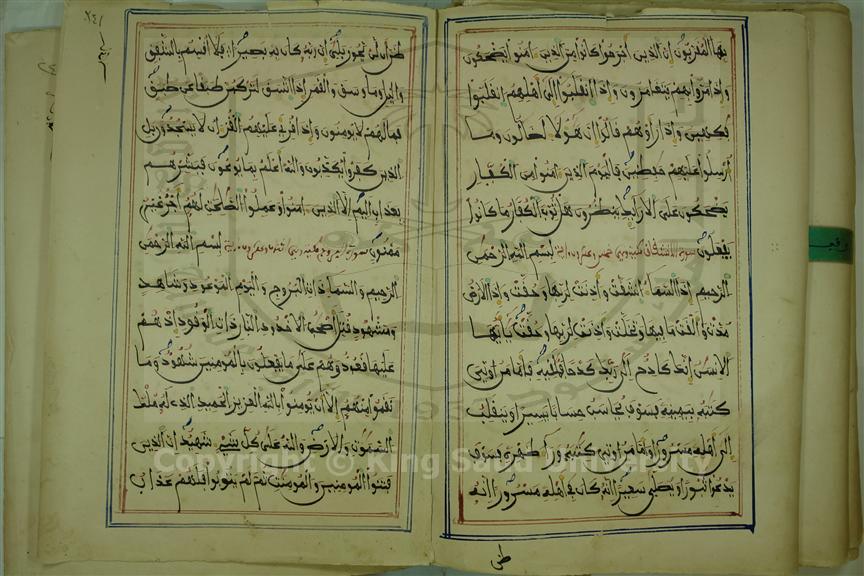 بها المقربون ان الذين اجرموا كانوا من الذين امنوا يضحكون
واذا مروا بهم يتغامزون واذا انقلبوا الى اهلهم انقلبوا
فكهين واذا راوهم قالوا ان هولا لضالون وما
ارسلوا عليهم حفظين فاليوم الذين امنوا من الكفار
يضحكون على الارايك ينظرون هل ثوب الكفار ما كانوا
يفعلون سورة الانشقاق مكية وهي خمس وعشرون اية بسم الله الرحمن
الرحيم اذا السماء انشقت واذنت لربها وحقت واذا الارض
مدت والقت ما فيها وتخلت واذنت لربها وحقت يايها
الانسن انك كادح الى ربك كدحا فملقيه فاما من اوتي
كتبه بيمينه فسوف يحاسب حسابا يسيرا وينقلب
الى اهله مسرورا واما من اوتي كتبه ورا ظهره فسوف
يدعوا ثبورا ويصلى سعيرا انه كان في اهله مسرورا انه
ظن
٢٤١
ظن ان لن يحور بلى ان ربه كان به بصيرا فلا اقسم بالشفق
واليل وما وسق والقمر اذا اتسق لتركبن طبقا عن طبق
فما لهم لا يومنون واذا قري عليهم القران لا يسجدون بل
الذين كفروا يكذبون والله اعلم بما يوعون فبشرهم
بعذاب اليم الا الذين امنوا وعملوا الصلحت لهم اجر غير
ممنون سورة البروج مكية وهي بسم الله الرحمن
الرحيم والسماء ذات البروج واليوم الموعود وشاهد
ومشهود قتل اصحب الاخدود النار ذات الوقود اذ هم
عليها قعود وهم على ما يفعلون بالمومنين شهود وما
نقموا منهم الا ان يومنوا بالله العزيز الحميد الذي له ملك
السموت والارض والله على كل شيء شهيد ان الذين
فتنوا المومنين والمومنت ثم لم يتوبوا فلهم عذاب
Copyright © King Saud University